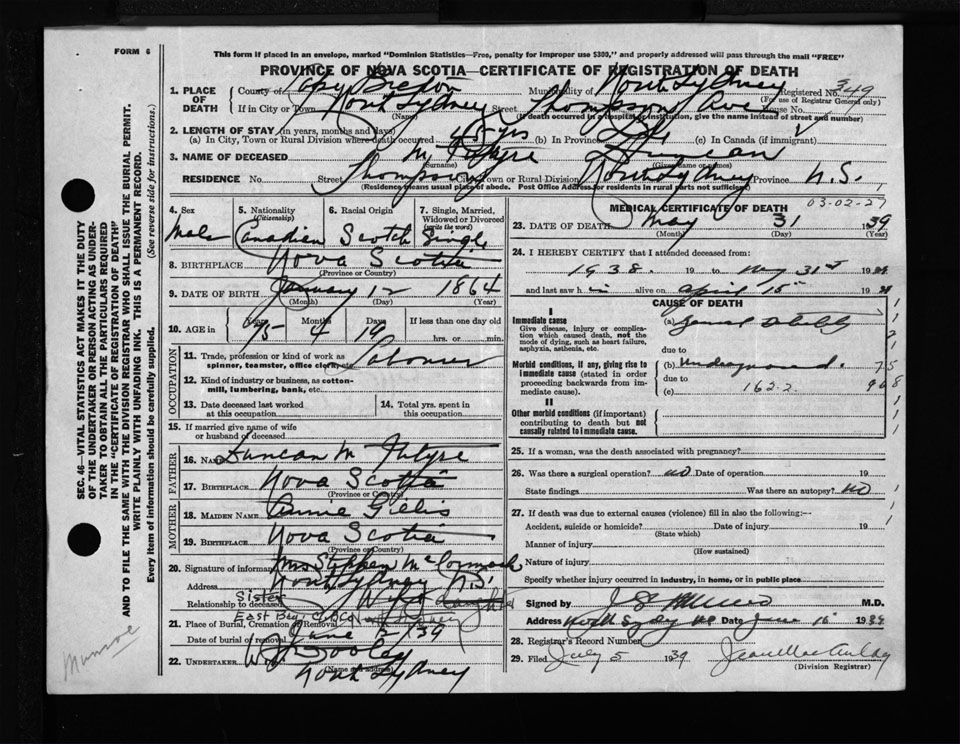 FORM 6
This form if placed in an envelope, marked "Dominion Statistics—Free, penalty for improper use $300," and properly addressed will pass through the mail "FREE"
PROVINCE OF NOVA SCOTIA—CERTIFICATE OF REGISTRATION OF DEATH
1. PLACE OF DEATH County of Cape Breton Municipality of North Sydney Registered No. 349
(For use of Registrar General only)
If in City or Town North Sydney Street Thompson Ave House No.
(Name) (If death occurred in a hospital or institution, give the name instead of street and number)
2. LENGTH OF STAY (in years, months and days)
(a) In City, Town or Rural Division where death occurred 45 yrs (b) In Province Life (c) In Canada (if immigrant)
3. NAME OF DECEASED McIntyre Duncan
(Surname) (Given name or names)
RESIDENCE No. Street Thompson City, Town or Rural Division North Sydney Province N.S.
(Residence means usual place of abode. Post Office Address for residents in rural parts not sufficient)
03-02-27
4. Sex Male
5. Nationality (Citizenship) Canadian
6. Racial Origin Scotch
7. Single, Married, Widowed or Divorced (write the word) Single
8. BIRTHPLACE Nova Scotia
(Province or Country)
9. DATE OF BIRTH January 12 1864
(Month) (Day) (Year)
10. AGE in Years 75 Months 4 Days 19 If less than one day old
hrs. or min.
OCCUPATION
11. Trade, profession or kind of work as spinner, teamster, office clerk, etc. Labourer
12. Kind of industry or business, as cotton-mill, lumbering, bank, etc.
13. Date deceased last worked at this occupation
14. Total yrs. spent in this occupation
15. If married give name of wife or husband of deceased
FATHER
16. NAME Duncan McIntyre
17. BIRTHPLACE Nova Scotia
(Province or Country)
MOTHER
18. MAIDEN NAME Annie Gillis
19. BIRTHPLACE Nova Scotia
(Province or Country)
20. Signature of informant Mrs Stephen McCormack
Address North Sydney N.S.
Relationship to deceased Sister
21. Place of Burial, Cremation or Removal East Bay
Date of burial or removal June 2/39
22. UNDERTAKER W J Dooley
(Name and address)
North Sydney
MEDICAL CERTIFICATE OF DEATH
23. DATE OF DEATH May 31 1939
(Month) (Day) (Year)
24. I HEREBY CERTIFY that I attended deceased from:
1938. 19 to May 31st 1939
and last saw him alive on April 15 1939
CAUSE OF DEATH
I
Immediate cause
Give disease, injury or complication which caused death, not the mode of dying, such as heart failure, asphyxia, asthenia, etc.
(a) General Debility
due to
Morbid conditions, if any, giving rise to immediate cause (stated in order proceeding backwards from immediate cause).
(b)
due to
(c) 162.2
II
Other morbid conditions (if important) contributing to death but not causally related to immediate cause.
25. If a woman, was the death associated with pregnancy?
26. Was there a surgical operation? no Date of operation 19
State findings Was there an autopsy? no
27. If death was due to external causes (violence) fill in also the following:—
Accident, suicide or homicide? Date of injury 19
(State which)
Manner of injury
(How sustained)
Nature of injury
Specify whether injury occurred in industry, in home, or in public place
Signed by M.D.
Address North Sydney Date June 16 1939
28. Registrar's Record Number
29. Filed July 5 1939 Jean MacAulay
(Division Registrar)
SEC. 46—VITAL STATISTICS ACT MAKES IT THE DUTY OF THE UNDERTAKER OR PERSON ACTING AS UNDERTAKER TO OBTAIN ALL THE PARTICULARS REQUIRED IN THE "CERTIFICATE OF REGISTRATION OF DEATH" AND TO FILE THE SAME WITH THE DIVISION REGISTRAR WHO SHALL ISSUE THE BURIAL PERMIT.
WRITE PLAINLY WITH UNFADING INK. THIS IS A PERMANENT RECORD.
Every item of information should be carefully supplied. (See reverse side for instructions.)
Munroe